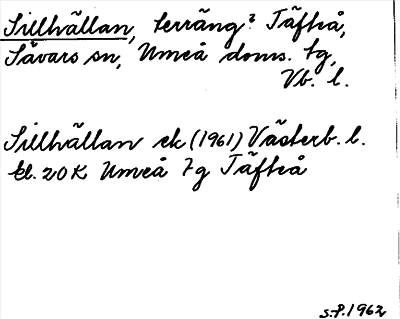 Sillhällan, terräng? Täfteå,
Sävars sn, Umeå doms. tg,
Vb. l.
Sillhällan ek (1961) Västerb. l.
bl. 20 K Umeå 7g Täfteå
S.P. 1962